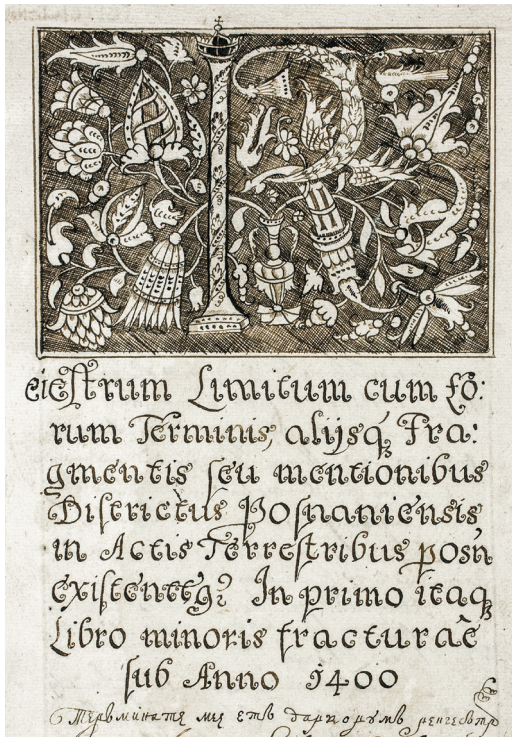 R
eiestrum Limitum cum Eo:
rum Terminis, alijsq, Fra:
gmentis seu mentionibus
Districtus Posnaniensis,
in Actis Terrestribus posn
existentt
In primo itaq
Libro minoris fracturae
sub Anno 1400